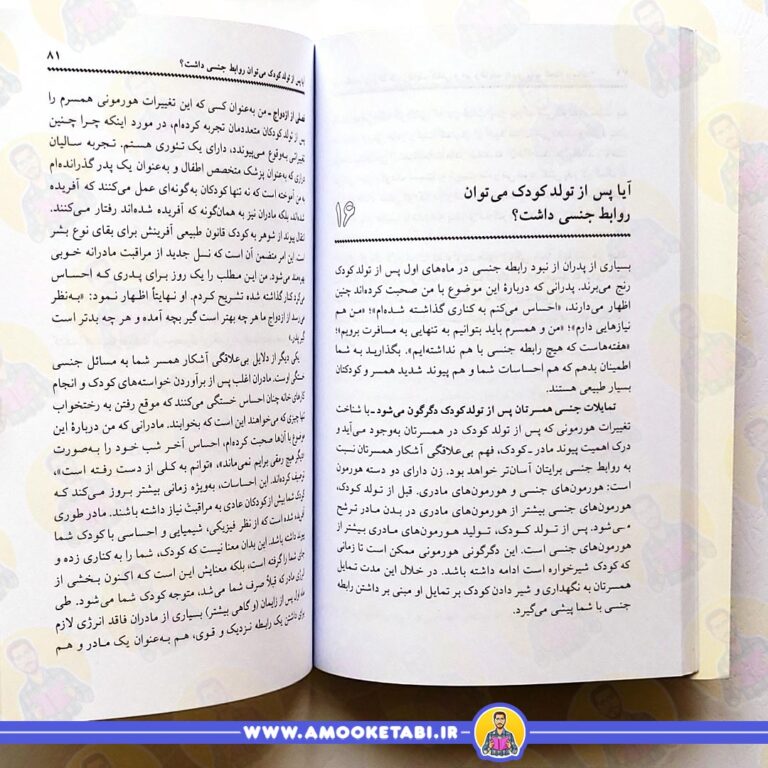 ۱۶
آیا پس از تولد کودک می‌توان
روابط جنسی داشت؟
بسیاری از پدران از نبود رابطه جنسی در ماه‌های اول پس از تولد کودک
رنج می‌برند. پدرانی که درباره این موضوع با من صحبت کرده‌اند چنین
اظهار می‌دارند، «احساس می‌کنم به کناری گذاشته شده‌ام»؛ «من هم
نیازهایی دارم»؛ «من و همسرم باید بتوانیم به تنهایی به مسافرت برویم»؛
«هفته‌هاست که هیچ رابطه جنسی با هم نداشته‌ایم». بگذارید به شما
اطمینان بدهم که هم احساسات شما و هم پیوند شدید همسر و کودکتان
بسیار طبیعی هستند.
تمایلات جنسی همسرتان پس از تولد کودک دگرگون می‌شود ـ با شناخت
تغییرات هورمونی که پس از تولد کودک در همسرتان به‌وجود می‌آید و
درک اهمیت پیوند مادر ـ کودک، فهم بی‌علاقگی آشکار همسرتان نسبت
به روابط جنسی برایتان آسان‌تر خواهد بود. زن دارای دو دسته هورمون
است: هورمون‌های جنسی و هورمون‌های مادری. قبل از تولد کودک،
هورمون‌های جنسی بیشتر از هورمون‌های مادری در بدن مادر ترشح
می‌شود. پس از تولد کودک، تولید هورمون‌های مادری بیشتر از
هورمون‌های جنسی است. این دگرگونی هورمونی ممکن است تا زمانی
که کودک شیرخواره است ادامه داشته باشد. در خلال این مدت تمایل
همسرتان به نگهداری و شیر دادن کودک بر تمایل او مبنی بر داشتن رابطه
جنسی با شما پیشی می‌گیرد.
آیا پس از تولد کودک می‌توان روابط جنسی داشت؟ ۸۱
فصلی از ازدواج ـ من به‌عنوان کسی که این تغییرات هورمونی همسرم را
پس از تولد کودکان متعددمان تجربه کرده‌ام، در مورد اینکه چرا چنین
تغییراتی به‌وقوع می‌پیوندد، دارای یک تئوری هستم. تجربه سالیان
درازی که به‌عنوان پزشک متخصص اطفال و به‌عنوان یک پدر گذرانده‌ام
به من آموخته است که نه تنها کودکان به گونه‌ای عمل می‌کنند که آفریده
شده‌اند، بلکه مادران نیز به همان‌گونه که آفریده شده‌اند رفتار می‌کنند.
انتقال پیوند از شوهر به کودک قانون طبیعی آفرینش برای بقای نوع بشر
است. این امر متضمن آن است که نسل جدید از مراقبت مادرانه خوبی
بهره‌مند می‌شود. من این مطلب را یک روز برای پدری که احساس
می‌کرد کنار گذاشته شده تشریح کردم. او نهایتاً اظهار نمود: «به‌نظر
می‌رسد از ازدواج ما هر چه بهتر است گیر بچه آمده و هر چه بدتر است
گیر پدر.»
یکی دیگر از دلایل بی‌علاقگی آشکار همسر شما به مسائل جنسی
خستگی اوست. مادران اغلب پس از برآوردن خواسته‌های کودک و انجام
کارهای خانه چنان احساس خستگی می‌کنند که موقع رفتن به رختخواب
تنها چیزی که می‌خواهند این است که بخوابند. مادرانی که من درباره این
موضوع با آن‌ها صحبت کرده‌ام، احساس آخر شب خود را به‌صورت
«دیگر هیچ رمقی برایم نمی‌ماند»، «توانم به کلی از دست رفته است»،
توصیف کرده‌اند. این احساسات، به‌ویژه زمانی بیشتر بروز می‌کند که
کودک شما بیش از کودکان عادی به مراقبت نیاز داشته باشند. مادر طوری
آفریده شده است که از نظر فیزیکی، شیمیایی و احساسی با کودک شما
پیوند داشته باشد. این بدان معنا نیست که کودک، شما را به کناری زده و
جای شما را گرفته است، بلکه معنایش این است که اکنون بخشی از
انرژی مادر که قبلاً صرف شما می‌شد، متوجه کودک شما می‌شود. طی
ماه اول پس از زایمان (و گاهی بیشتر) بسیاری از مادران فاقد انرژی لازم
برای داشتن یک رابطه نزدیک و قوی، هم به‌عنوان یک مادر و هم
WWW.AMOOKETABI.IR